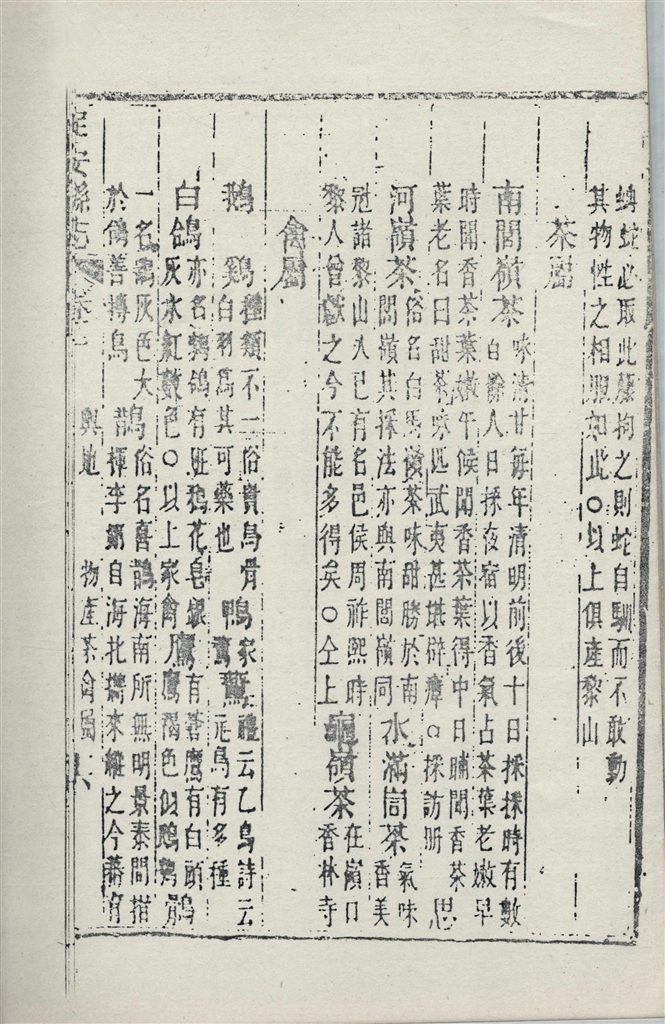 蚺蛇必取此藤拘之則蛇自馴而不敢動
其物性之相服如此〇以上俱產黎山
茶屬
南閭嶺茶味清甘每年清明前後十日採採時有數
白黎人日採夜宿以香氣占茶葉老嫩早
時聞香茶葉嫩午候聞香茶葉得中日晡聞香茶
葉老名曰甜茶味匹武夷甚堪辟瘴〇採訪冊思
河嶺茶俗名白馬嶺茶味甜勝於南
閭嶺其採法亦與南閭嶺同水滿峒茶氣味
香美
冠諸黎山人已有名邑侯周祚熙時
黎人曾獻之今不能多得矣〇仝上龜嶺茶在嶺口
香林寺
禽屬
鵝 雞種類不一俗貴烏骨
白羽為其可藥也鴨家
鶩燕禮云乙鳥詩云
元鳥有多種
白鴿亦名鵓鴿有斑鴉花皂銀
灰水紅數色〇以上家禽鷹有蒼鷹有白頭
鷹褐色似鴟鶚鶻
一名鷂灰色大
於鴿善摶鳥鵲俗名喜鵲海南所無明景泰間指
揮李翊自海北攜來縱之今蕃育
定安縣志 卷之一 輿地 物產茶禽屬